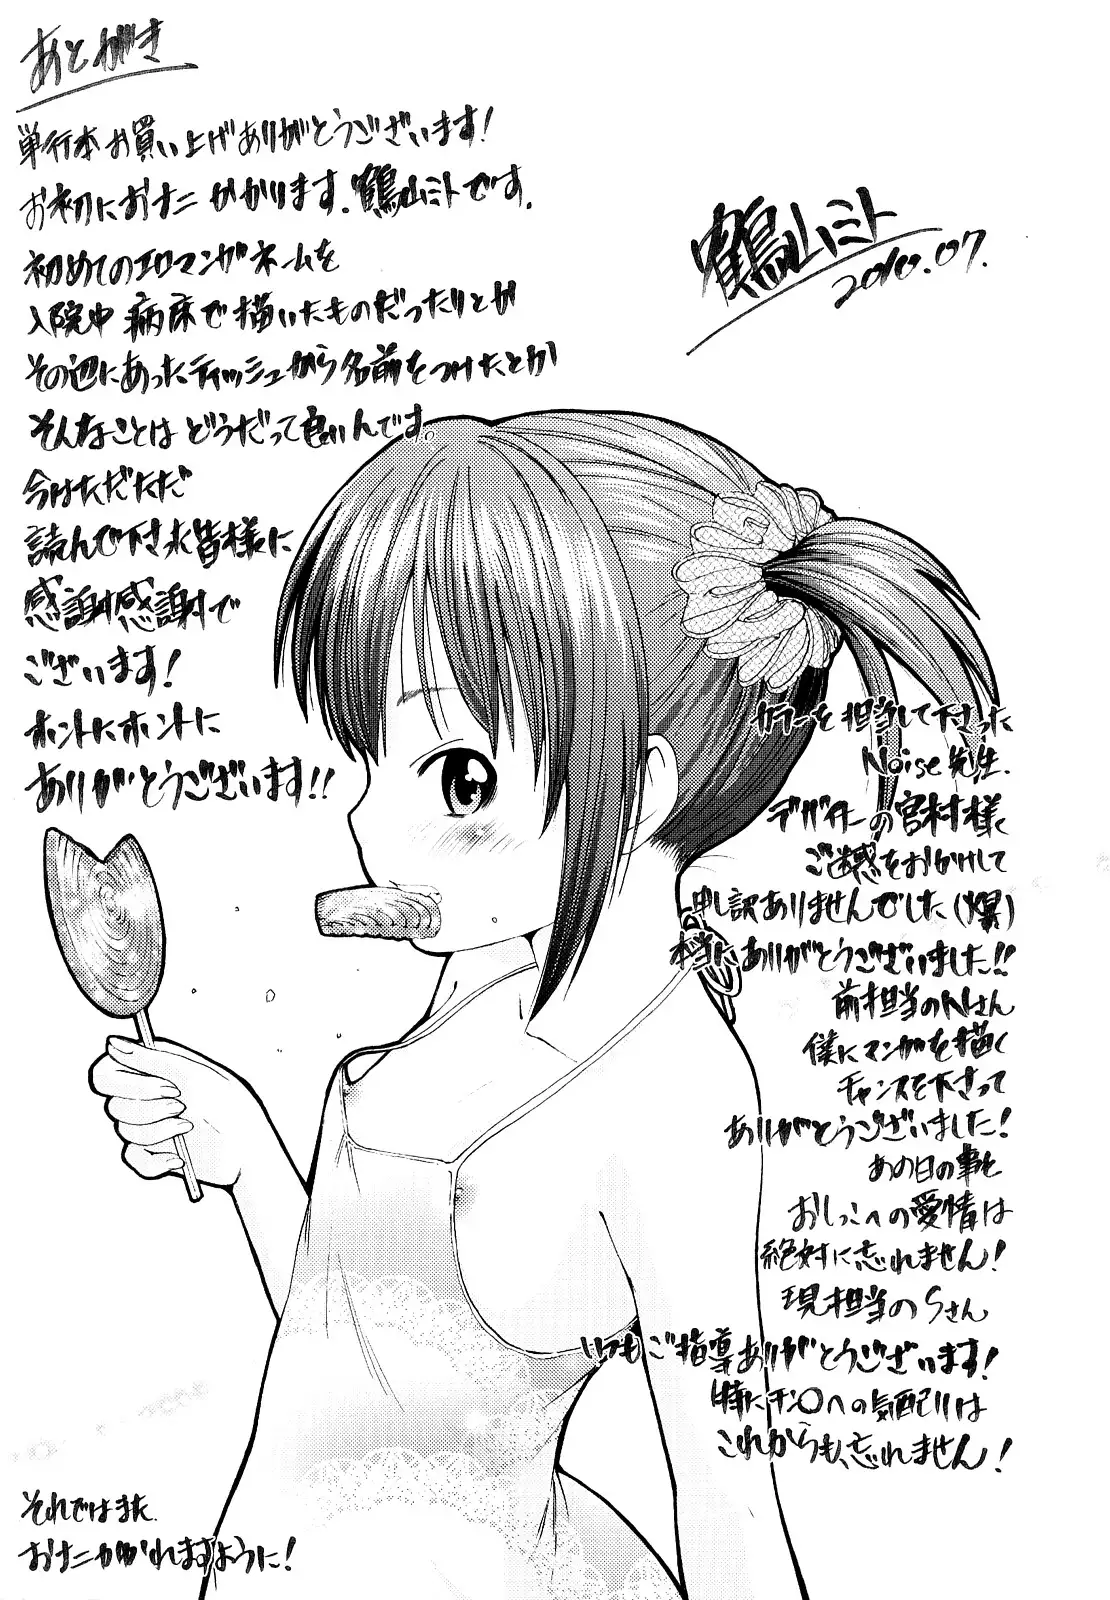 あとがき
単行本お買い上げありがとうございます!
お初におナニかかります。鶴山ミトです。
初めてのエロマンガネームを
入院中病床で描いたものだったりとか
その辺にあったティッシュから名前をつけたとか
そんなことはどうだって良いんです。
今はただただ
読んで下さる皆様に
感謝感謝で
ございます!
ホントにホントに
ありがとうございます!!
鶴山ミト
2010.07.
カラーを担当して下さった
Noise先生。
デザイナーの宮村様
ご迷惑をおかけして
申し訳ありませんでした(爆)
本当にありがとうございました!!
前担当のNさん
僕にマンガを描く
チャンスを下さって
ありがとうございました!
あの日の事と
おしっこへの愛情は
絶対に忘れません!
現担当のSさん
いつもご指導ありがとうございます!
特にチン○への気配りは
これからも、忘れません!
それではまた
おナニかかれますように!